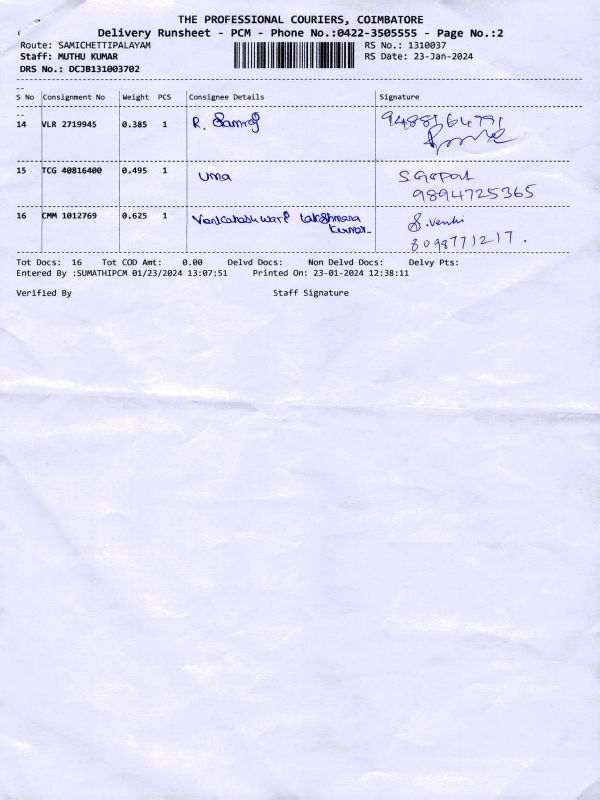 THE PROFESSIONAL COURIERS, COIMBATORE
Delivery Runsheet - PCM - Phone No.:0422-3505555 - Page No.:2
Route: SAMICHETTIPALAYAM RS No.: 1310037
Staff: MUTHU KUMAR RS Date: 23-Jan-2024
DRS No.: DCJB131003702
S No Consignment No Weight PCS Consignee Details Signature
14 VLR 2719945 0.385 1 R.
15 TCG 40816400 0.495 1 uma S Gopal
9894725365
16 CMM 1012769 0.625 1 Venkateshwari Lakshmana S. Venki
Kumar 8098771217.
Tot Docs: 16 Tot COD Amt: 0.00 Delvd Docs: Non Delvd Docs: Delvy Pts:
Entered By :SUMATHIPCM 01/23/2024 13:07:51 Printed On: 23-01-2024 12:38:11
Verified By Staff Signature